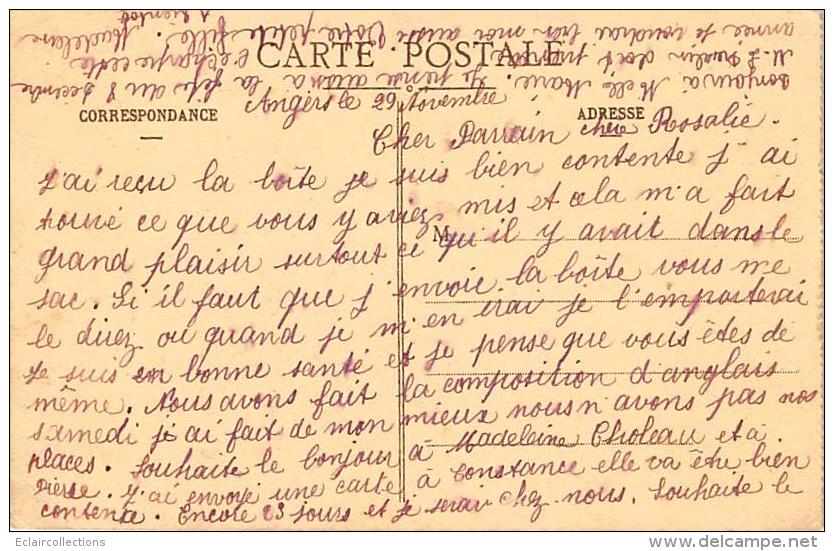 CARTE POSTALE
CORRESPONDANCE
ADRESSE
M
Angers le 29 Novembre
Cher Parrain chère Rosalie.
J'ai reçu la boîte je suis bien contente j'ai
trouvé ce que vous y aviez mis et cela m'a fait
grand plaisir surtout ce qu'il y avait dans le
sac. Si il faut que j'envoie la boîte vous me
le direz ou quand je m'en irai je l'emporterai
Je suis en bonne santé et je pense que vous êtes de
même. Nous avons fait la composition d'anglais
samedi j'ai fait de mon mieux nous n'avons pas nos
places. Souhaite le bonjour à Madeleine Choleau et à
Pierse. J'ai envoyé une carte à Constance elle va être bien
contente. Encore 23 jours et je serai chez nous. Souhaite le
bonjour à Melle Marie. Je pense qu'on a la fête du 8 décembre
M. L. doit prendre l'écharpe cette
année je voudrai bien moi aussi Votre petite fille. Madeleine
A bientôt
Eclaircollections
www.delcampe.net